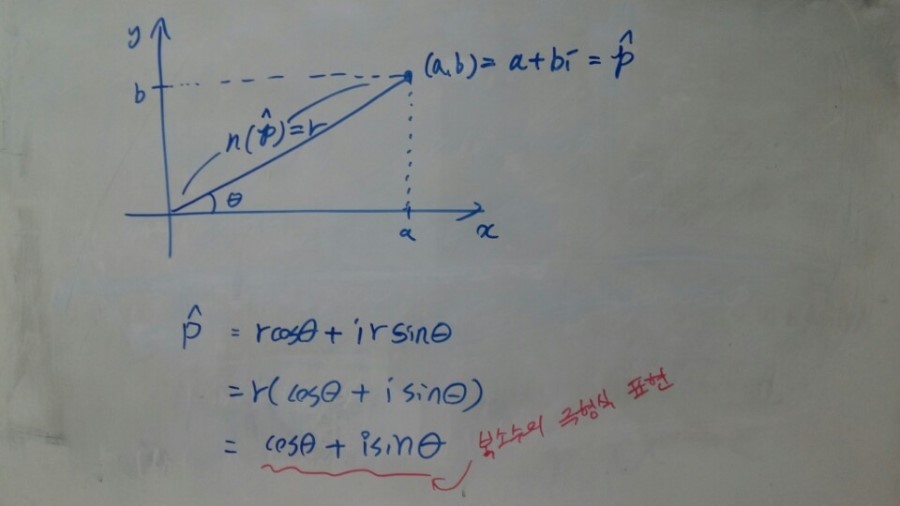 y
(a,b) = a+bi = p̂
b
n(p̂)=r
θ
a
x
p̂ = rcosθ + i r sinθ
= r( cosθ + i sinθ)
= cosθ + isinθ
복소수의 극형식 표현